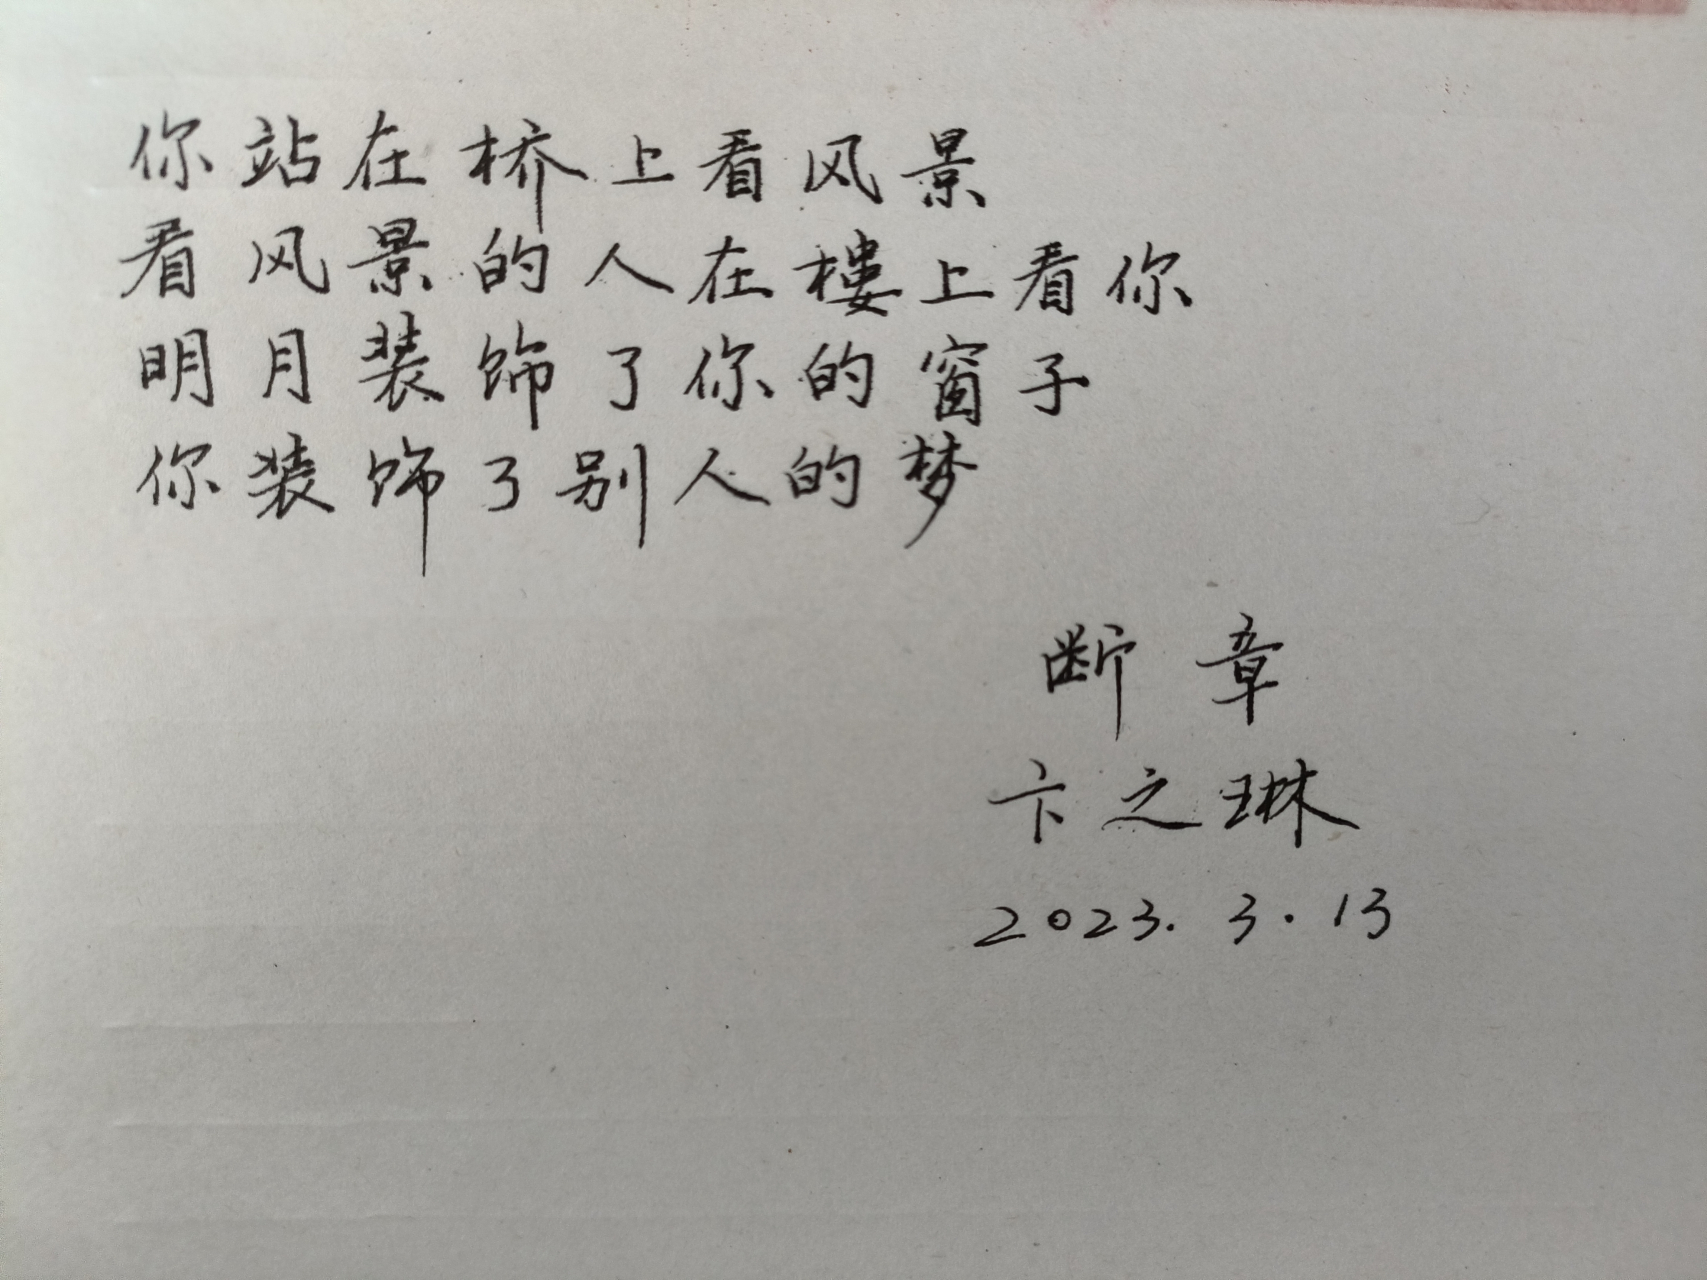 你站在桥上看风景
看风景的人在樓上看你
明月装饰了你的窗子
你装饰了别人的梦
断章
卞之琳
2023.3.13